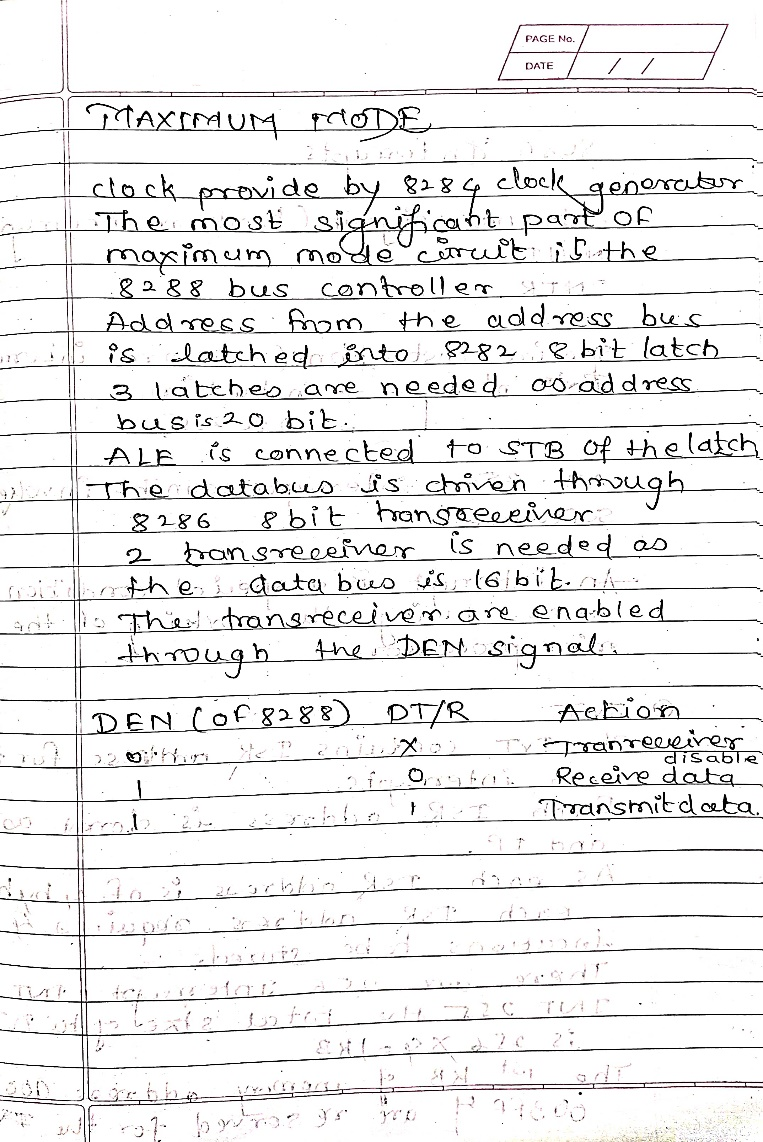 PAGE No.
DATE / /
MAXIMUM MODE
clock provide by 8284 clock generator
The most significant part of
maximum mode circuit is the
8288 bus controller
Address from the address bus
is latched into 8282 8 bit latch
3 latches are needed as address
bus is 20 bit.
ALE is connected to STB of the latch
The databus is driven through
8286 8 bit transreceiver
2 transreceiver is needed as
the data bus is 16 bit.
The transreceiver are enabled
through the DEN signal.
DEN (of 8288) DT/R Action
0 X Tranreceiver
disable
1 0 Receive data
1 1 Transmit data.